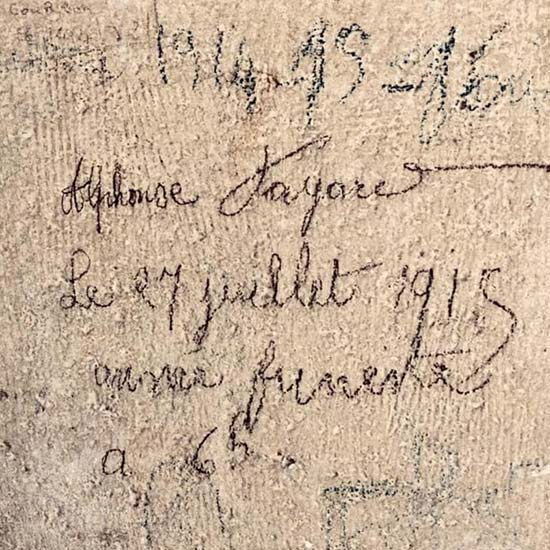 1914-15-16
Alphonse Fayare
Le 27 juillet 1915
année funeste
a 6h